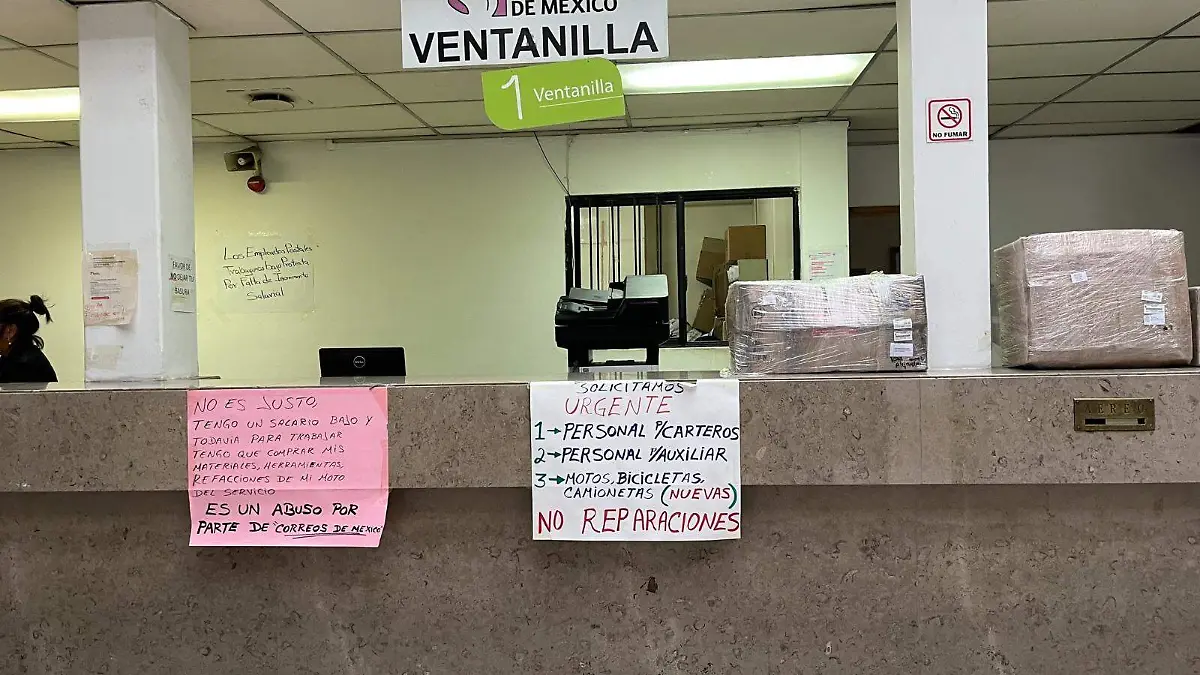 DE MÉXICO
VENTANILLA
1 Ventanilla
NO FUMAR
Los Empleados Postales
Trabajamos Bajo Protesta
Por Falta de Incremento
Salarial
FAVOR DE
NO DEJAR TU
BASURA
NO ES JUSTO,
TENGO UN SALARIO BAJO Y
TODAVIA PARA TRABAJAR
TENGO QUE COMPRAR MIS
MATERIALES, HERRAMIENTAS,
REFACCIONES DE MI MOTO
DEL SERVICIO
ES UN ABUSO POR
PARTE DE "CORREOS DE MEXICO"
SOLICITAMOS
URGENTE
1→PERSONAL P/CARTEROS
2→PERSONAL P/AUXILIAR
3→MOTOS, BICICLETAS,
CAMIONETAS (NUEVAS)
NO REPARACIONES
AEREO
DELL